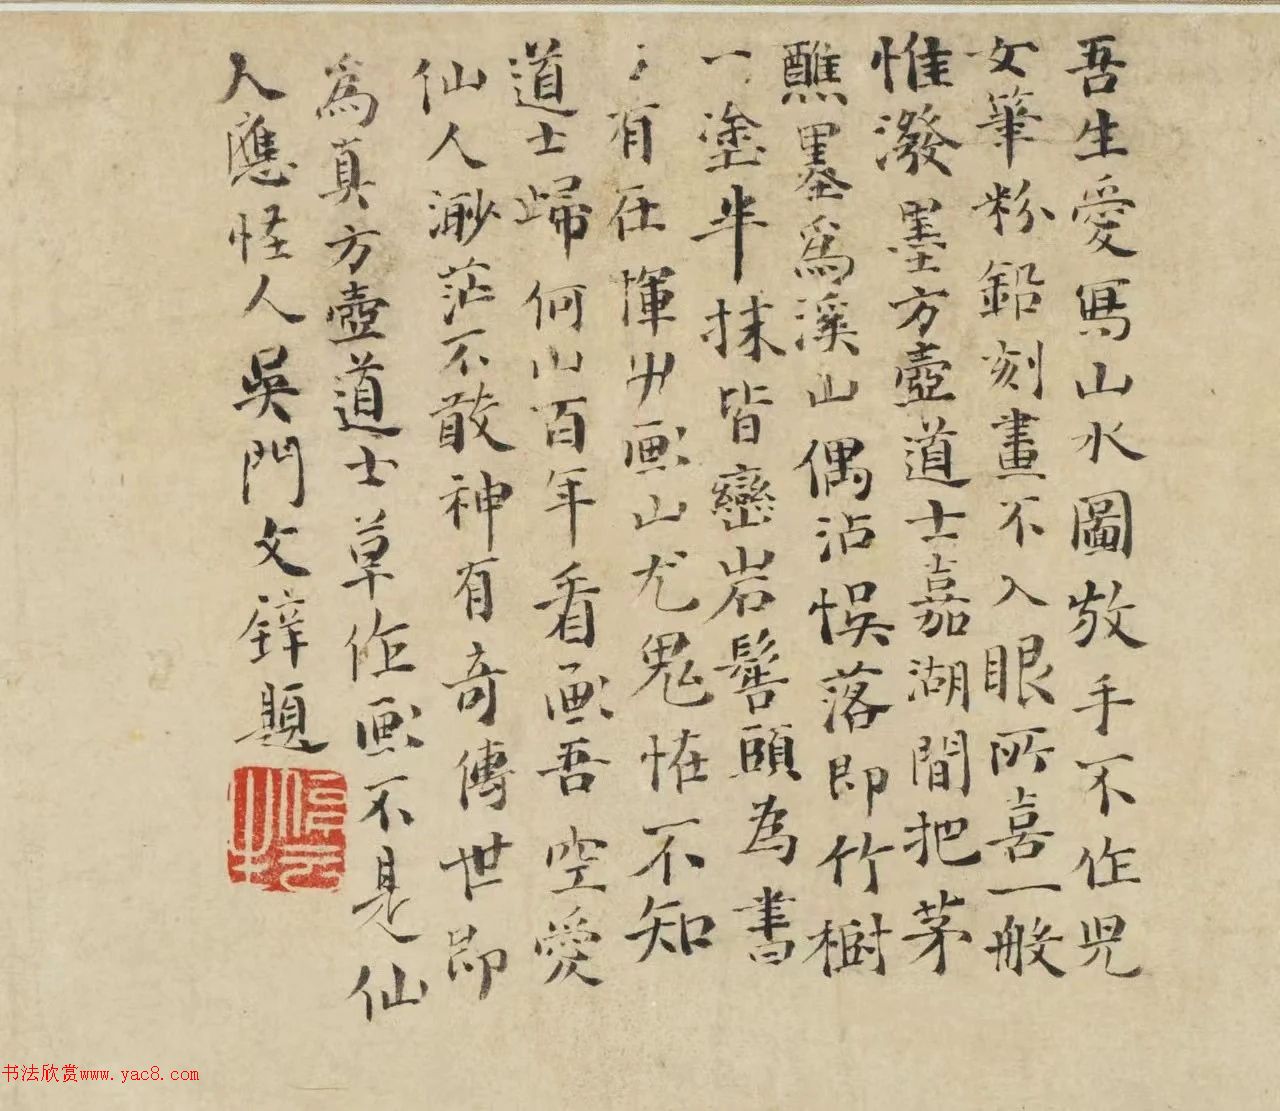 吾生愛寫山水圖敢手不作兒
女筆粉鉛刻畫不入眼所喜一般
惟潑墨方壺道士嘉湖間把茅
醮墨為溪山偶沾悞落即竹樹
一塗半抹皆巒岩髻頤為書
有在惲史画山尤鬼恠不知
道士歸何山百年看画吾空愛
仙人渺茫不敢神有奇傳世即
為真方壺道士草作画不見仙
人應怪人吳門文鋅題
书法欣赏www.yac8.com